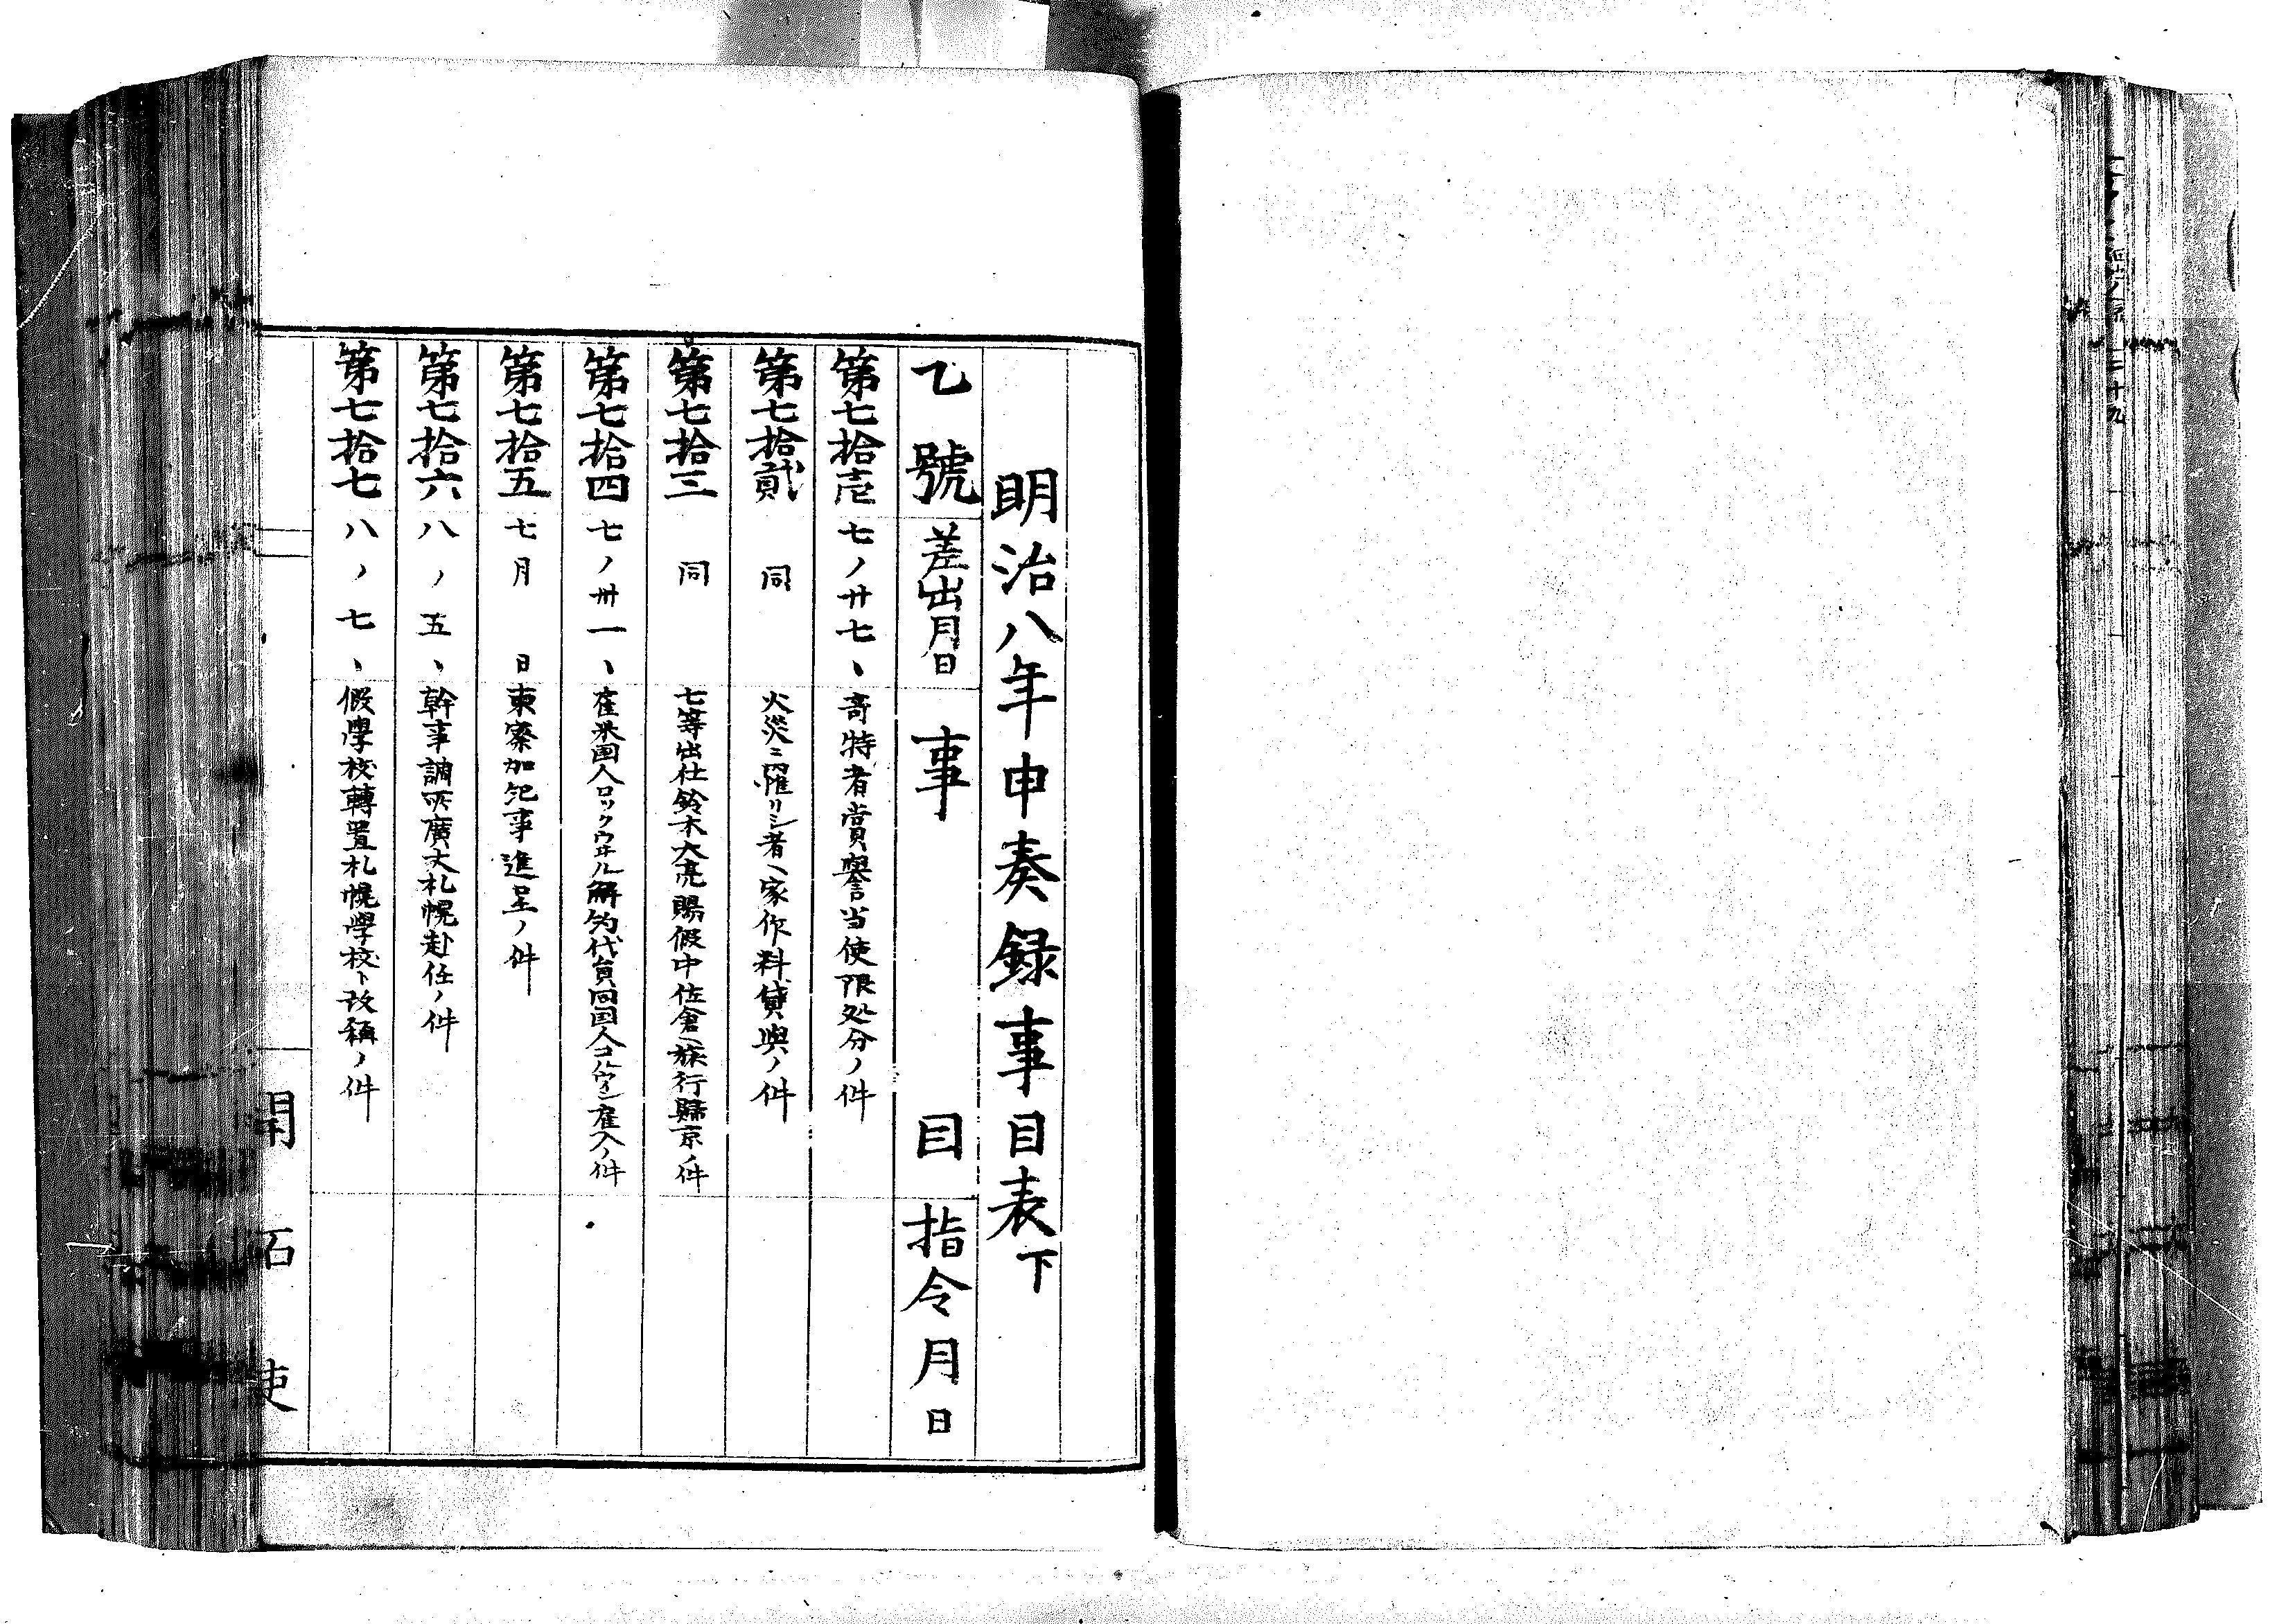 明治八年申奏録事目表下
乙號 差出月日 事 目 指令月日
第七拾壱 七ノ廿七、 奇特者賞譽当使限処分ノ件
第七拾貳 同 火災ニ罹リシ者ヘ家作料貸與ノ件
第七拾三 同 七等出仕鈴木大亮賜假中佐倉ヘ旅行歸京ノ件
第七拾四 七ノ卅一、 雇米国人ロックウヰル解約代員同国人コルウィン雇入ノ件
第七拾五 七月 日 東察加紀事進呈ノ件
第七拾六 八ノ五、 幹事調所廣丈札幌赴任ノ件
第七拾七 八ノ七、 假學校轉置札幌學校ト改稱ノ件
開拓使